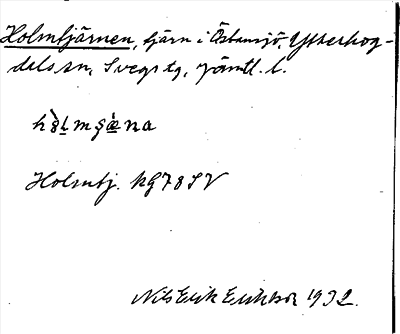 Holmtjärnen, tjärn i Östansjö, Ytterhog-
dals sn, Svegs tg, Jämtl. l.
Holmtj. KG78SV
Nils Erik Eriksson 1932.